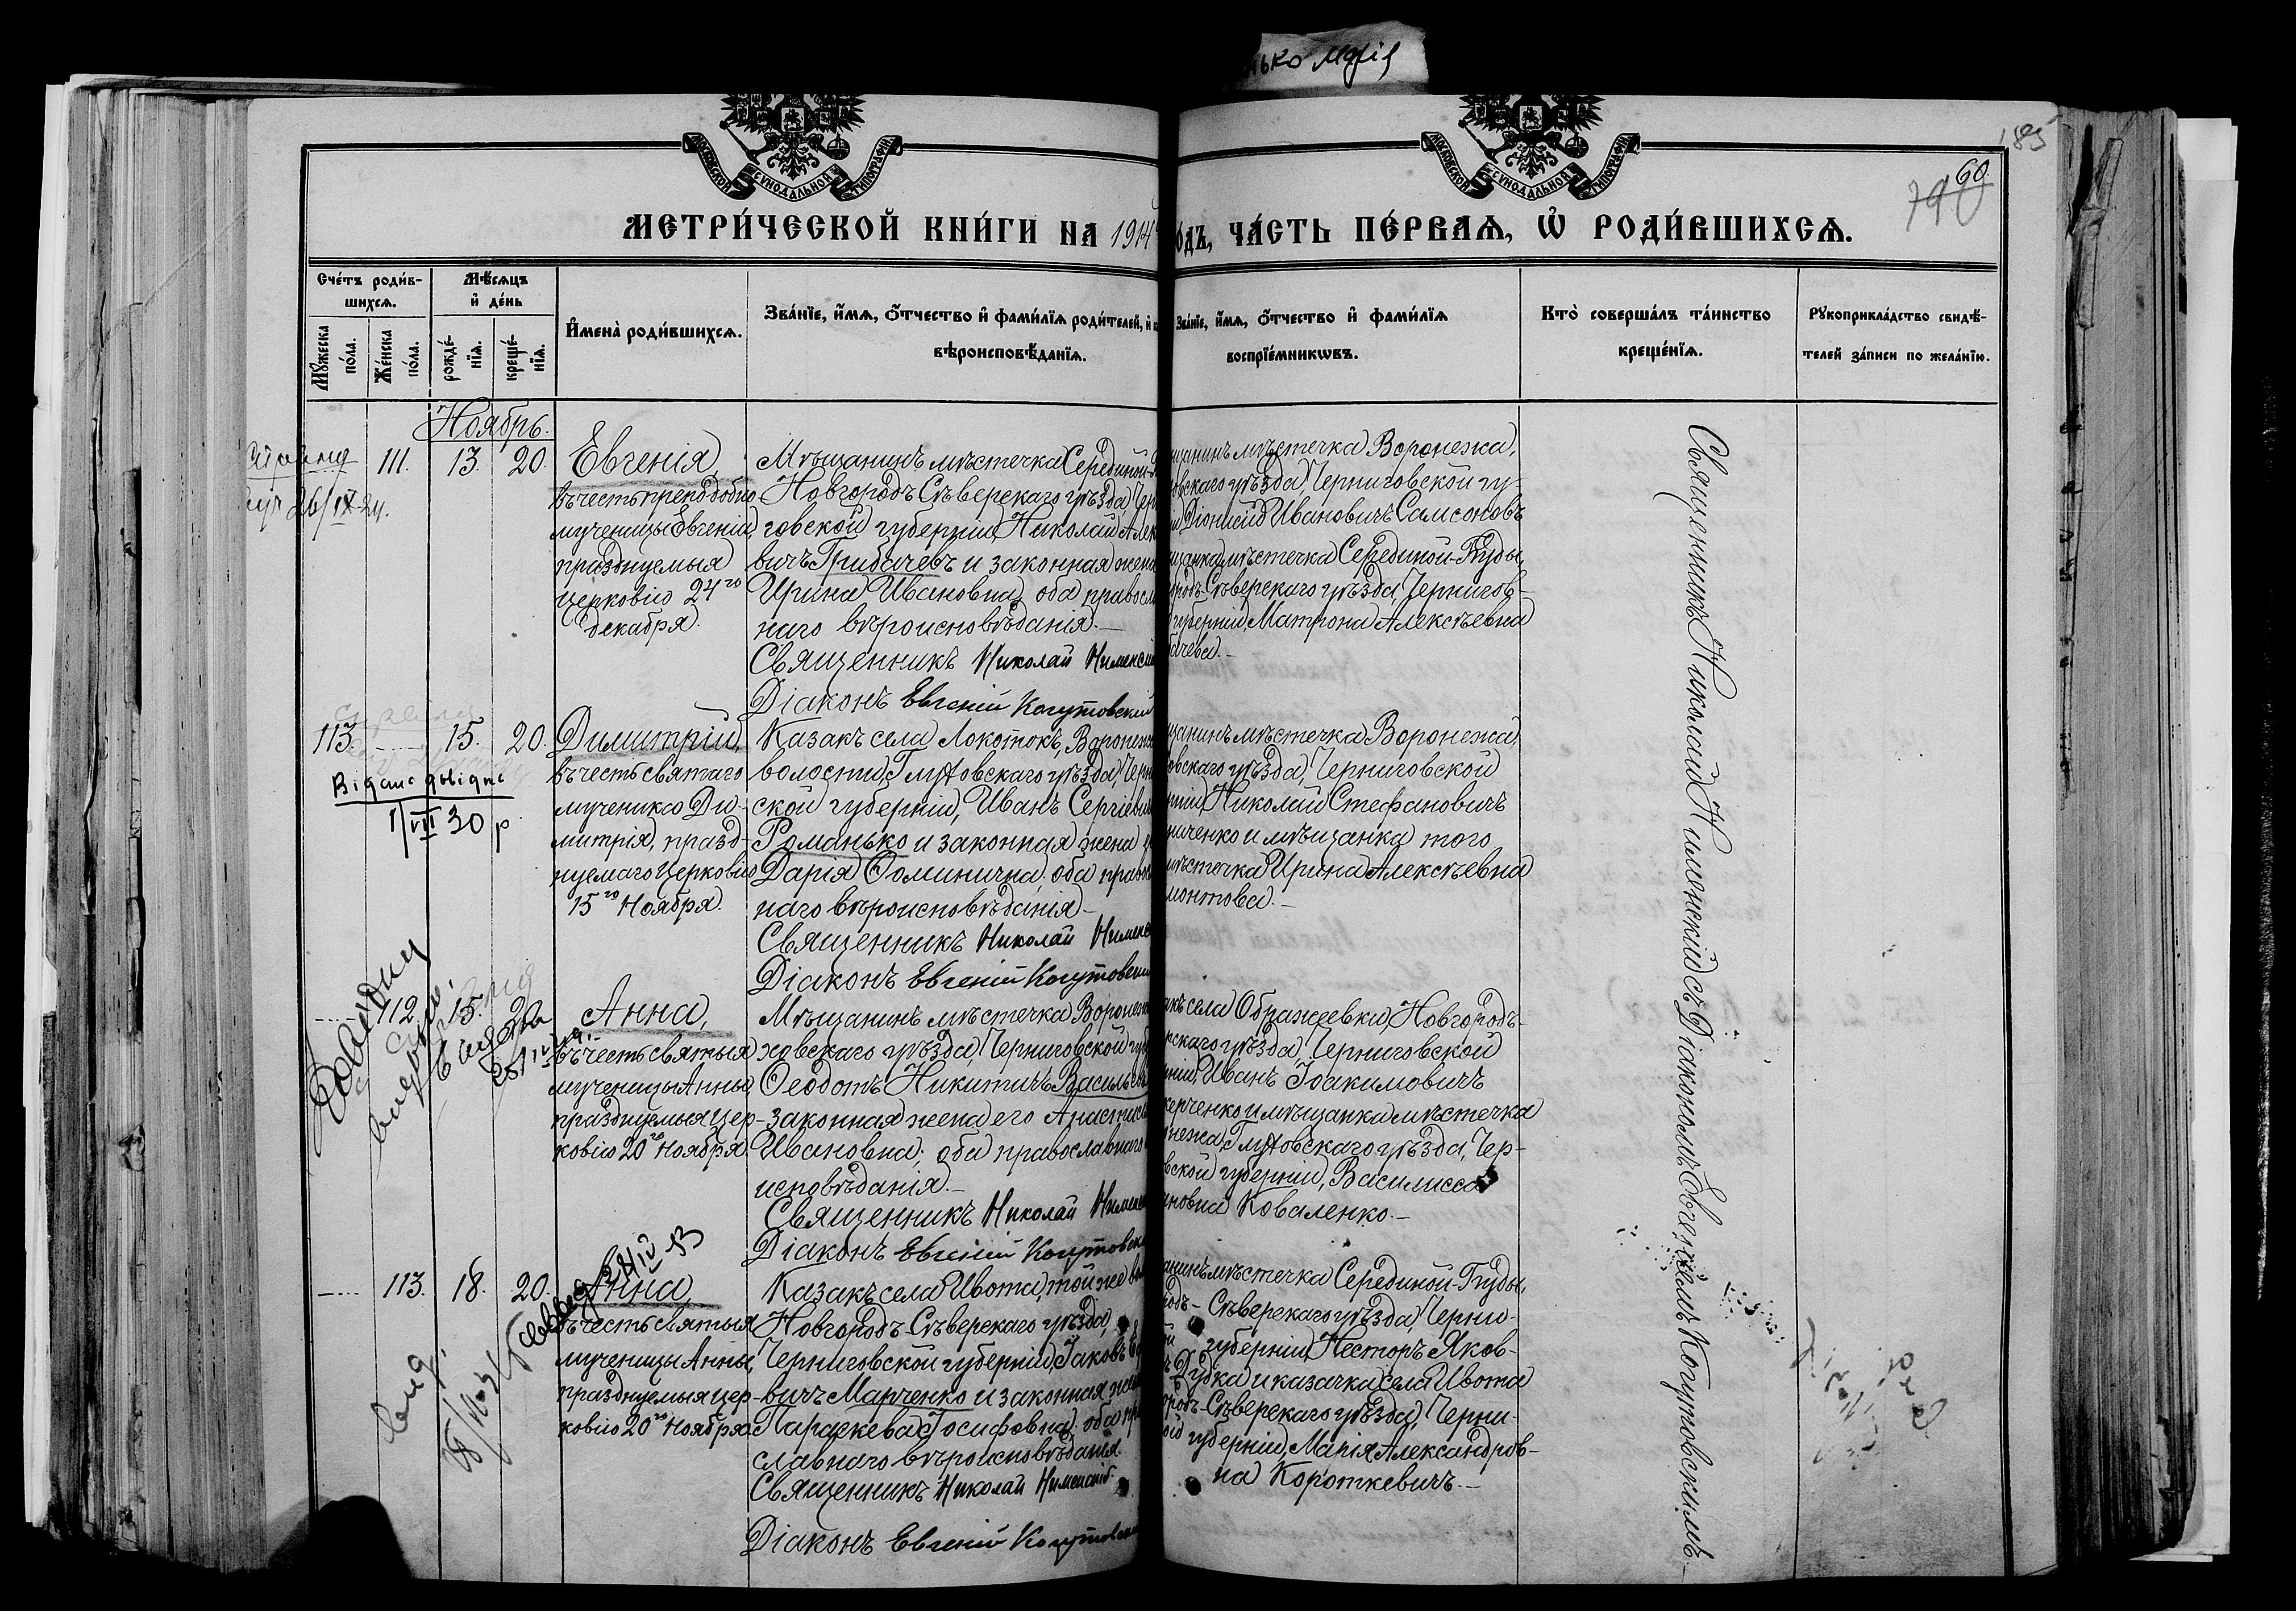 ько Марія
МОСКОВСКОЙ СѴНОДАЛЬНОЙ ТИПОГРАФІИ
МОСКОВСКОЙ СѴНОДАЛЬНОЙ ТИПОГРАФІИ
185
60
МЕТРИ́ЧЕСКОЙ КНИ́ГИ НА 1914
о́дъ, ЧА́СТЬ ПЕ́РВАѦ, Ѡ҆ РОДИ́ВШИХСѦ.
Сче́тъ роди́в-
шихсѧ.
Мѣ́сѧцъ
и҆ де́нь
Мꙋ́жеска по́ла.
Же́нска по́ла.
рожде́-нїѧ.
креще́-нїѧ.
И҆мена̀ роди́вшихсѧ.
Зва́нїе, и҆́мѧ, ѻ҆́тчество и҆ фами́лїѧ роди́телей, и҆ к
вѣроисповѣ́данїѧ.
Зва́нїе, и҆́мѧ, ѻ҆́тчество и҆ фами́лїѧ
воспрїе́мникѡвъ.
Кто̀ соверша́лъ та́инство
креще́нїѧ.
Рꙋкоприкла́дство свидѣ́-
телей за́писи по жела́нїю.
Ноябрь.
111. 13. 20.
26/IX-24.
Евгенія,
въ честь преподобно
мученицы Евгеніи,
празднуемыя
церковію 24го
декабря.
Мѣщанинъ мѣстечка Середино-
Новгородъ Сѣверскаго уѣзда, Чер
говской губерніи, Николай Алек
вичъ Грибачевъ и законная жена
Ирина Ивановна, оба правосл
наго вѣроисповѣданія.—
Священникъ Николай Нименскій
Діаконъ Евгеній Когутовскій
щанинъ мѣстечка Воронежа,
овскаго уѣзда, Черниговской гу-
и Діонисій Ивановичъ Самсоновъ
щанка мѣстечка Середино-Буды,
родъ-Сѣверскаго уѣзда, Чернигов-
губерніи, Матрона Алексѣевна
бачева.—
113. 15. 20.
Видано довідку
1/VII 30 р
Димитрій,
въ честь святаго
мученика Ди-
митрія, празд-
нуемаго Церковію
15го Ноября.
Казакъ села Локотокъ, Воронеж
волости, Глуховскаго уѣзда, Черн
ской губерніи, Иванъ Сергіевич
Романько и законная жена е
Дарія Ѳоминична, оба правос
наго вѣроисповѣданія.—
Священникъ Николай Нименс
Діаконъ Евгеній Когутовскій
щанинъ мѣстечка Воронежа,
овскаго уѣзда, Черниговской
рніи, Николай Стефановичъ
ниченко и мѣщанка того
мѣстечка Ирина Алексѣевна
монтова.—
112. 15. 20.
Анна,
въ честь святыя
мученицы Анны,
празднуемыя цер-
ковію 20го Ноября.
Мѣщанинъ мѣстечка Воронеж
ховскаго уѣзда, Черниговской губ
Ѳеодотъ Никитичъ Василь
законная жена его Анастас
Ивановна; оба православнаго
исповѣданія.—
Священникъ Николай Нименс
Діаконъ Евгеній Когутовск
акъ села Ображеевки, Новгородъ-
рскаго уѣзда, Черниговской
рніи, Иванъ Іоакимовичъ
ерченко и мѣщанка мѣстечка
нежа, Глуховскаго уѣзда, Чер-
вской губерніи, Василисса
ановна Коваленко.—
28/IV-53
113. 18. 20.
Анна,
въ честь святыя
мученицы Анны,
празднуемыя цер-
ковію 20го Ноября.
Казакъ села Ивота, той же во
Новгородъ-Сѣверскаго уѣзда,
Черниговской губерніи, Іаковъ
вичъ Марченко и законная жен
Параскева Іосифовна; оба пра
славнаго вѣроисповѣданія.
Священникъ Николай Нименскій.
Діаконъ Евгеній Когутовск
анинъ мѣстечка Середино-Буды,
родъ-Сѣверскаго уѣзда, Черни-
й губерніи, Несторъ Яков-
ъ Дубка и казачка села Ивота
ородъ-Сѣверскаго уѣзда, Черни-
ой губерніи, Марія Александров-
на Короткевичъ.—
Священникъ Николай Нименскій съ Діакономъ Евгеніемъ Когутовскимъ.—